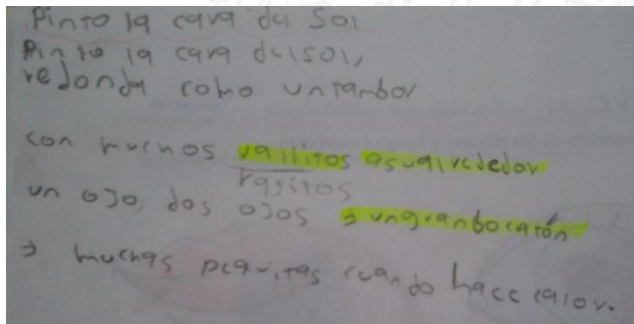 Pinto la cara del Sol
Pinto la cara delsol,
redonda como untambor
con muchos rallitos asualrededor
rayitos
un ojo, dos ojos y ungranbocatón
y muchas pequitas cuando hace calor.